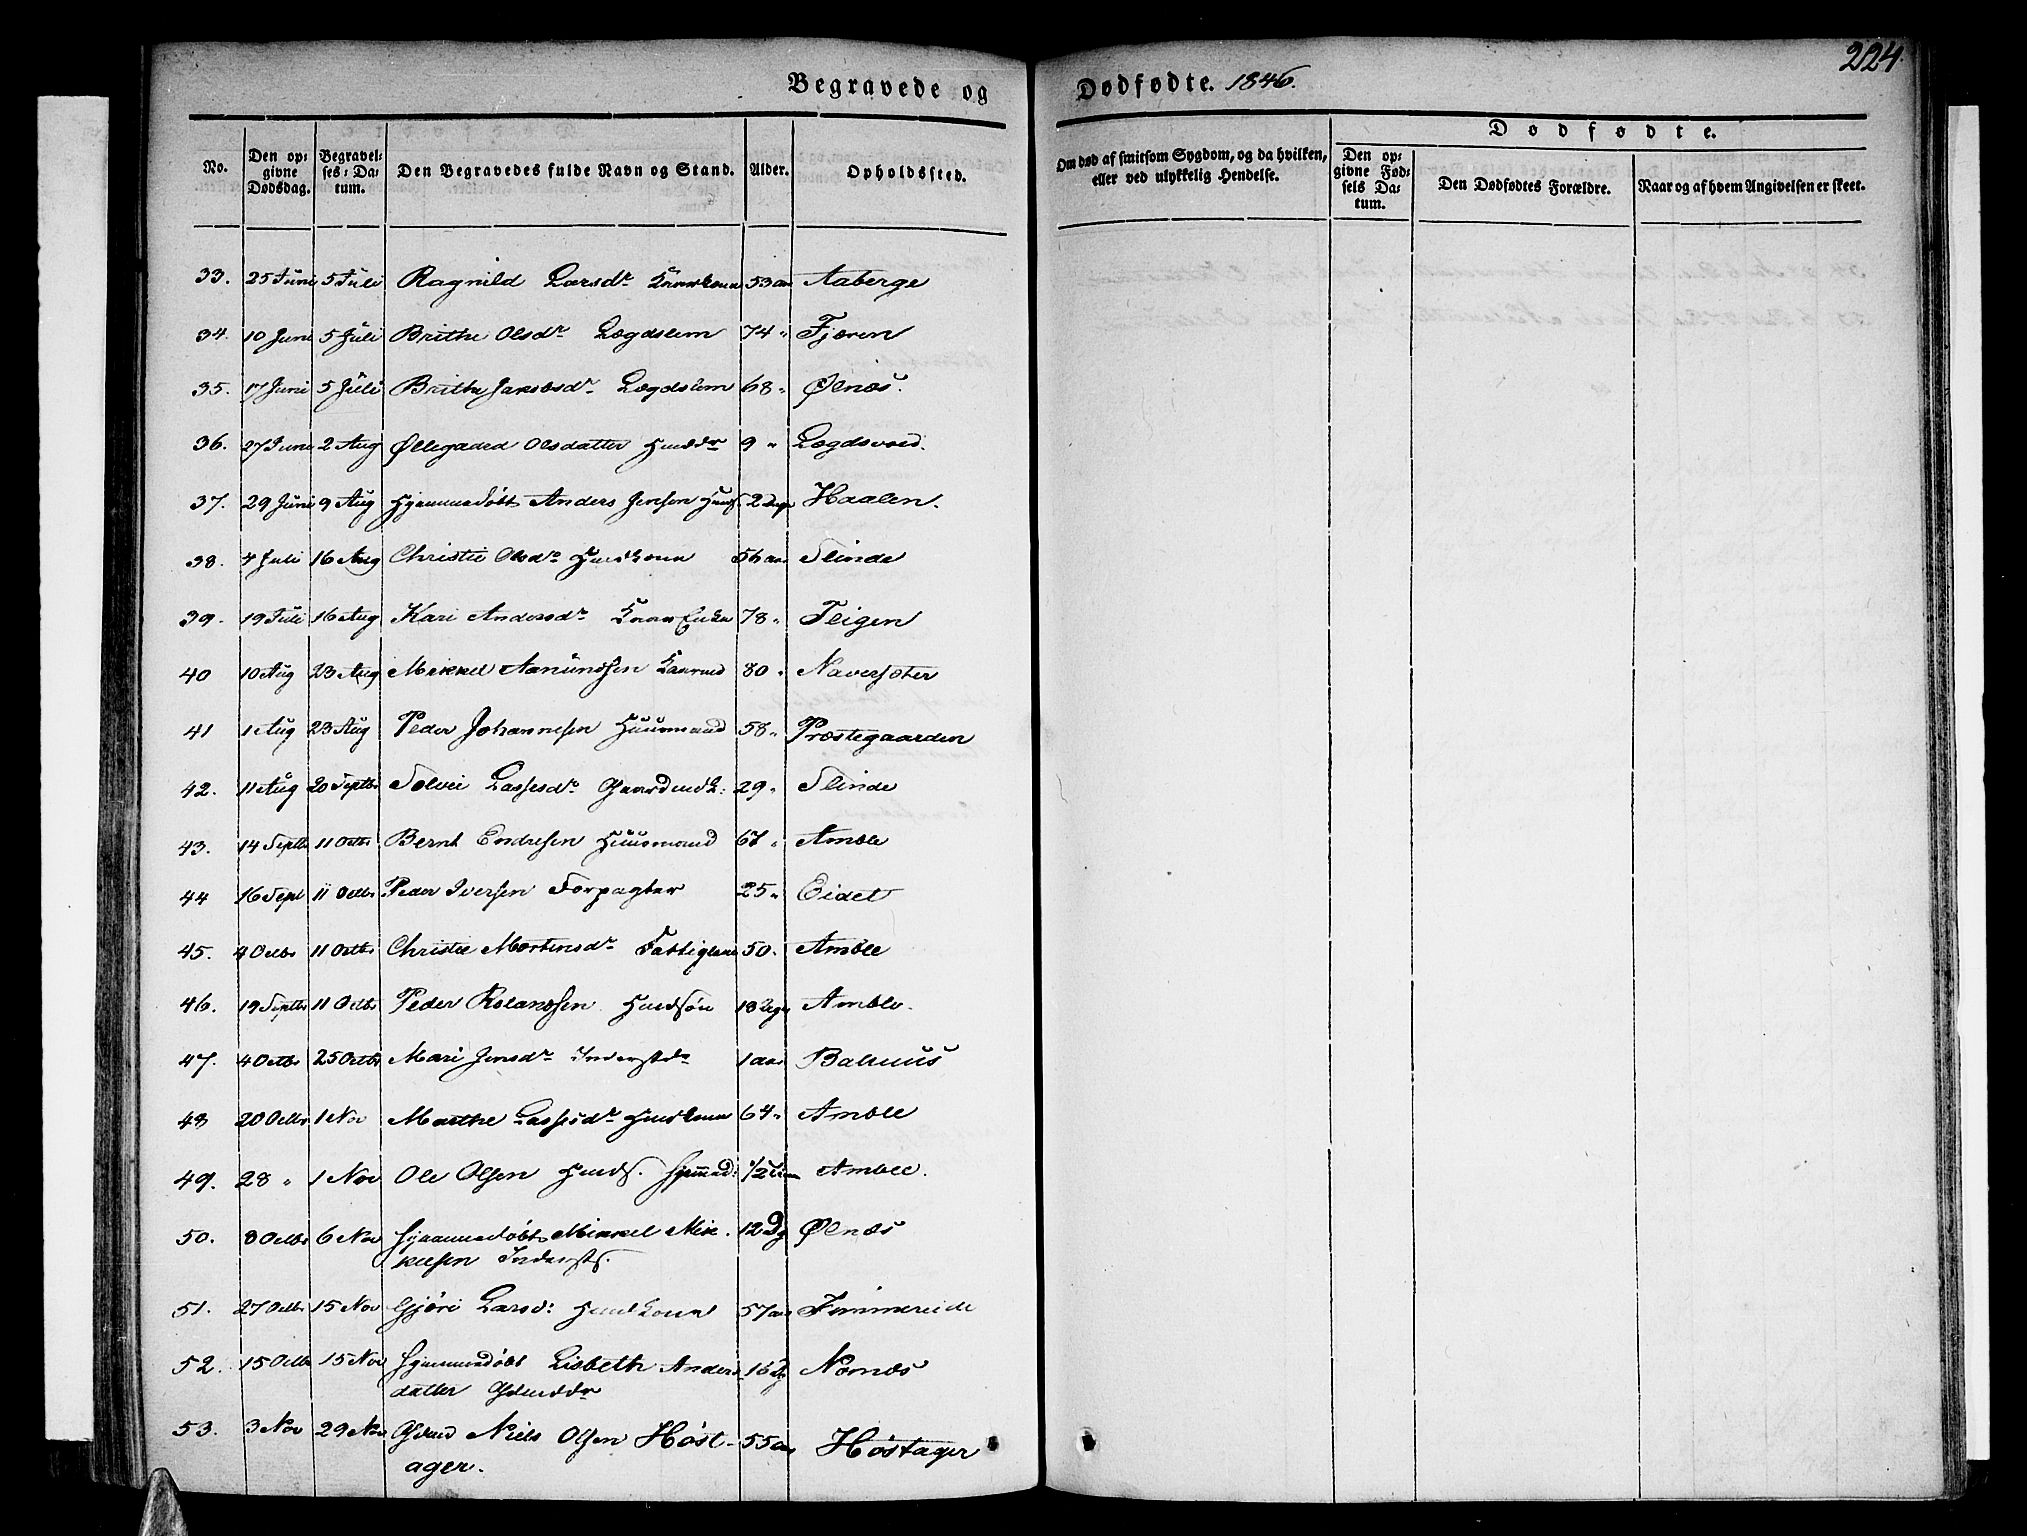 224.
Begravede og Dødfødte. 1846.
No. Den opgivne Dødsdag. Begravelses-Datum. Den Begravedes fulde Navn og Stand. Alder. Opholdssted. Om død af smitsom Sygdom, og da hvilken, eller ved ulykkelig Hendelse. Dødfødte. Den opgivne Fødsels Datum. Den Dødfødtes Forældre. Naar og af hvem Angivelsen er skeet.
33. 25 Juni 5 Juli Ragnild Larsdr 53 aar Aaberge
34. 10 Juni 5 Juli Brithe Olsdr Lægdslem 74 " Fjæren
35. 17 Juni 5 Juli Brithe Jakobsdr Lægdslem 68 " Ølnæs.
36. 27 Juni 2 Aug Øllegaard Olsdatter Huusdr 9 " Lægdsvoed.
37. 29 Juni 9 Aug Hjemmedøbt Anders Jensen Huuss. 2 Dage Haalen.
38. 4 Juli 16 Aug Christie Olsdr Huuskone 56 aar Slinde
39. 19 Juli 16 Aug Kari Andersdr Enke 78 " Teigen
40 10 Aug 23 Aug Mikkel Aamundsen 80 " Navarsæter
41 1 Aug 23 Aug Peder Johannesen Huusmand 58 " Præstegaarden
42. 11 Aug 20 Septbr Solvei Lassesdr 29 " Slinde
43. 14 Septbr 11 Octbr Bernt Endresen Huusmand 67 " Amble
44 16 Sept 11 Octbr Peder Iversen Forpagter 25 " Eidet
45. 4 Octbr 11 Octbr Christie Mortensdr Fattiglem 50 " Amble
46. 19 Septbr 11 Octbr Peder Rolandsen Huussøn 18 Uger Amble.
47. 4 Octbr 25 Octbr Mari Jensdr Inderstdr 1 aar Bahuus
48 20 Octbr 1 Nov Marthe Lassesdr Huuskone 64 " Amble
49. 28 " 1 Nov Ole Olsen Huuss. Hjemmed: 1/2 Time Amble.
50. 8 Octbr 6 Nov Hjemmedøbt Mikkel Mik-
kelsen Indersts. 12 Dg Ølnæs
51. 27 Octbr 15 Nov Gjøri Larsd: Huuskone 57 aar Fimmereide
52. 15 Octbr 15 Nov Hjemmedøbt Lisbeth Anders-
datter Gdmddr 16 Dg Nornæs
53. 3 Nov 29 Nov Gdmd Niels Olsen Høst-
ager. 55 aar Høstager